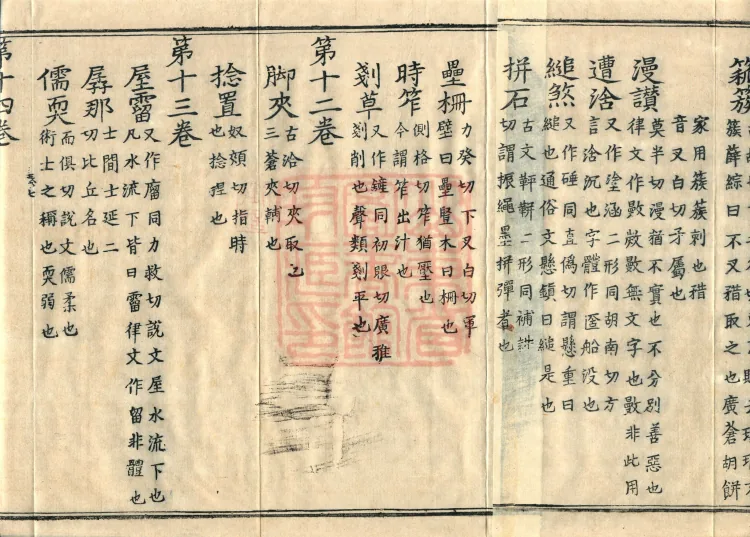 簇薛綜曰不叉矠取之也廣蒼胡餅
家用簇簇刺也矠
音叉白切矛屬也
漫讃 莫半切漫猶不實也不分別善惡也
律文作無文字也數非此用
遭浛 又作塗涵二形同胡南切方
言浛沉也字體作船没也
縋煞 又作硾同直偽切謂懸重曰
縋也通俗文懸鎮曰縋是也
拼石 古文二形同補
切謂振繩墨拼彈者也
壘柵 力癸切下叉白切軍
壁曰壘豎木曰柵也
時笮 側格切笮猶壓也
今謂笮出汁也
剗草 又作鏟同初眼切廣雅
剗削也聲類剗平也
第十二卷
脚夾 古洽切夾取也
三蒼夾輔也
捻置 奴頰切指時
也捻捏也
第十三卷
屋霤 又作廇同力救切說文屋水流下也
凡水流下皆曰霤律文作留非體也
羼那 士間士延二
切比丘名也
儒耎 而俱切說文儒柔也
術士之稱也耎弱也
第十四卷